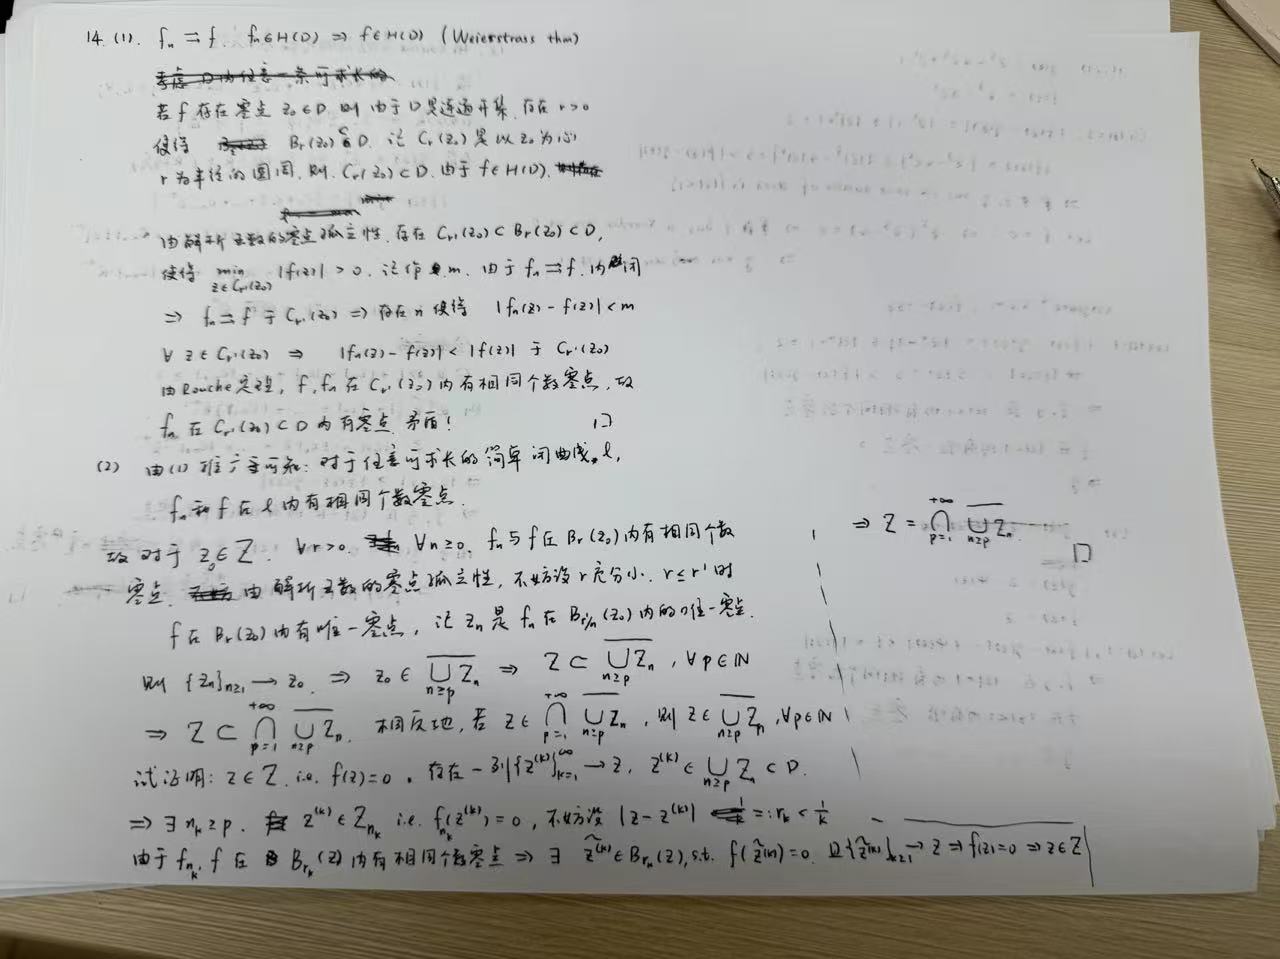 14. (1). fn ⇉ f. fn∈H(D) ⇒ f∈H(D) (Weierstrass thm)
若 f 存在零点 z₀∈D, 则由于 D 是连通开集, 存在 r>0
使得 Br(z₀) ⊂ D. 记 Cr(z₀) 是以 z₀ 为心
r 为半径的圆周, 则. Cr(z₀) ⊂ D. 由于 f∈H(D),
由解析函数的零点孤立性, 存在 Cr'(z₀) ⊂ Br(z₀) ⊂ D,
使得 min_{z∈Cr'(z₀)} |f(z)| > 0. 记作 m. 由于 fn ⇉ f. 内闭
⇒ fn ⇉ f 于 Cr'(z₀) ⇒ 存在 n 使得 |fn(z) - f(z)| < m
∀ z∈Cr'(z₀) ⇒ |fn(z) - f(z)| < |f(z)| 于 Cr'(z₀)
由 Rouche 定理, f, fn 在 Cr'(z₀) 内有相同个数零点, 故
fn 在 Cr'(z₀) ⊂ D 内有零点. 矛盾! □
(2) 由 (1) 推广可知: 对于任意可求长的简单闭曲线 ℓ,
fn 和 f 在 ℓ 内有相同个数零点.
故对于 z₀∈Z. ∀r>0. ∀n≥0. fn 与 f 在 Br(z₀) 内有相同个数
零点. 由解析函数的零点孤立性, 不妨设 r 充分小. r≤r' 时
f 在 Br(z₀) 内有唯一零点, 记 Zn 是 fn 在 B_{r/n}(z₀) 内的唯一零点.
则 {Zn}_{n≥1} → z₀. ⇒ z₀ ∈ \overline{∪_{n≥p} Zn} ⇒ Z ⊂ \overline{∪_{n≥p} Zn}, ∀p∈ℕ
⇒ Z ⊂ ∩_{p=1}^{+∞} \overline{∪_{n≥p} Zn}. 相反地, 若 z∈ ∩_{p=1}^{+∞} \overline{∪_{n≥p} Zn}, 则 z∈ \overline{∪_{n≥p} Zn}, ∀p∈ℕ
试证明: z∈Z. i.e. f(z)=0. 存在一列 {z^{(k)}}_{k=1}^{∞} → z, z^{(k)} ∈ ∪_{n≥p} Zn ⊂ D.
⇒ ∃ n_k ≥ p. z^{(k)} ∈ Z_{n_k} i.e. f_{n_k}(z^{(k)}) = 0, 不妨设 |z - z^{(k)}| =: r_k < 1/k
由于 f_{n_k}, f 在 B_{r_k}(z) 内有相同个数零点 ⇒ ∃ \tilde{z}^{(k)} ∈ B_{r_k}(z), s.t. f(\tilde{z}^{(k)}) = 0. 且 {\tilde{z}^{(k)}}_{k≥1} → z ⇒ f(z)=0 ⇒ z∈Z
⇒ Z = ∩_{p=1}^{+∞} \overline{∪_{n≥p} Zn}.
□